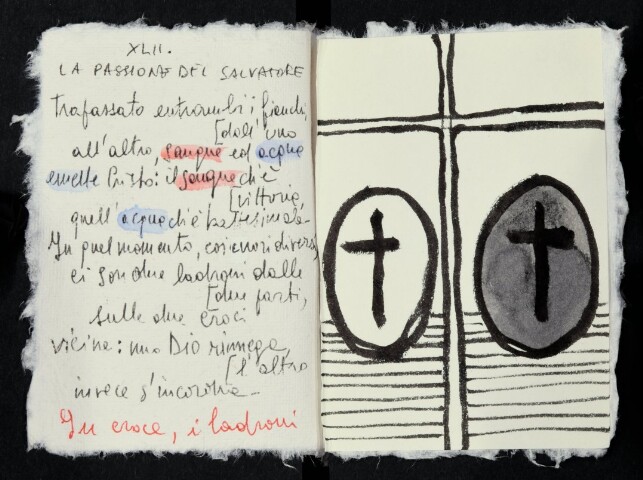 XLII.
LA PASSIONE DEL SALVATORE
Trapassato entrambi i fianchi,
[dall'uno
all'altro, sangue ed acqua
emette Cristo: il sangue ch'è
[vittoria,
quell'acqua ch'è battesimale.
In quel momento, coi cuori diversi,
ci son due ladroni dalle
[due parti,
sulle due croci
vicine: uno Dio rinnega
[l'altro
invece s'incorona -
In croce, i ladroni